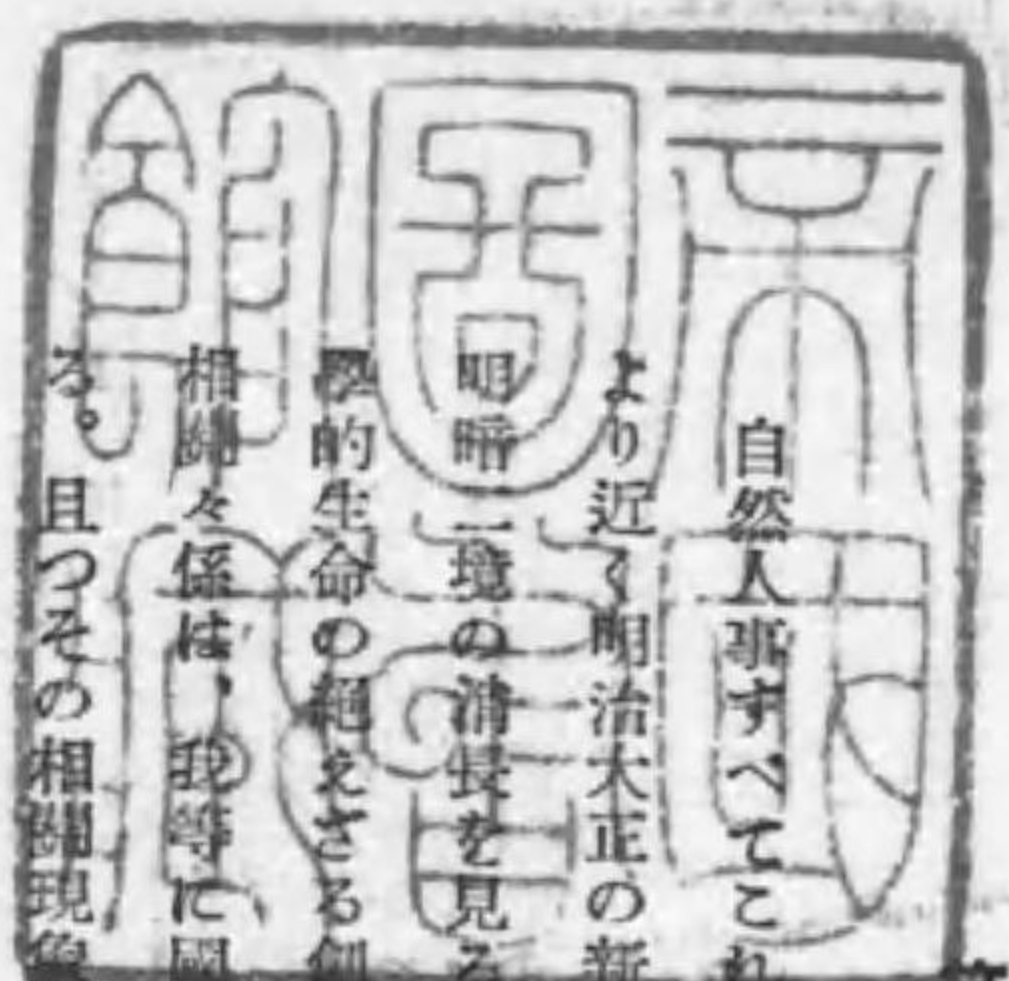 帝國
圖書
館藏
自然人事すべてこれ
より近く明治大正の新
明暗二境の消長を見る
的生命の絶えざる創
相關々係は、我等に國
る。且つその相關現象